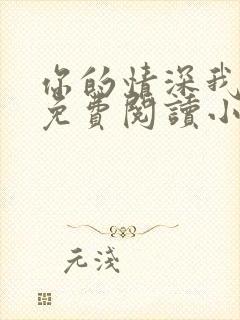 你的情深我
免費閱讀小
元淺